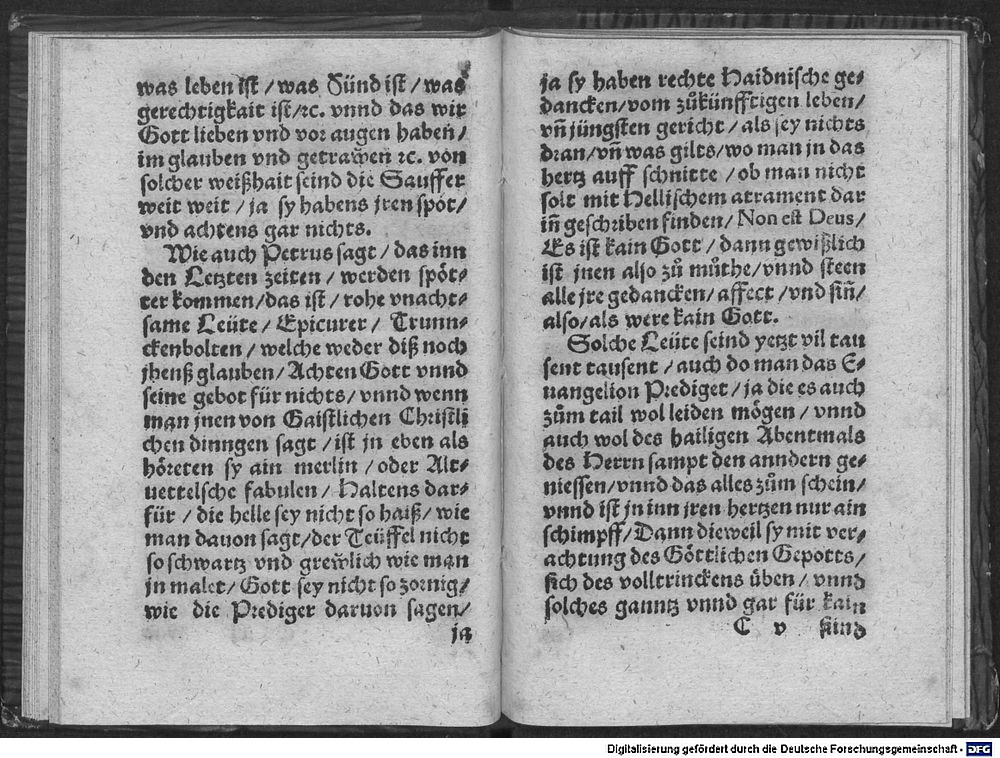 was leben ist / was Sünd ist / was
gerechtigkait ist / ꝛc. vnnd das wir
Gott lieben vnd vor augen haben /
im glauben vnd getrawen ꝛc. von
solcher weißhait seind die Sauffer
weit weit / ja sy habens jren spot /
vnd achtens gar nichts.
Wie auch Petrus sagt / das inn
den Letzten zeiten / werden spöt⸗
ter kommen / das ist / rohe vnacht⸗
same Leüte / Epicurer / Trunn⸗
ckenbolten / welche weder diß noch
jhenß glauben / Achten Gott vnnd
seine gebot für nichts / vnnd wenn
man jnen von Gaistlichen Christli
chen dinngen sagt / ist jn eben als
höreten sy ain merlin / oder Alt⸗
uettelsche fabulen / Haltens dar⸗
für / die helle sey nicht so haiß / wie
man dauon sagt / der Teüffel nicht
so schwartz vnd grewlich wie man
jn malet / Gott sey nicht so zornig /
wie die Prediger daruon sagen /
ja
ja sy haben rechte Haidnische ge⸗
dancken / vom zůkünfftigen leben /
vñ jüngsten gericht / als sey nichts
dran / vñ was gilts / wo man jn das
hertz auff schnitte / ob man nicht
solt mit Hellischem atrament dar
iñ geschriben finden / Non est Deus /
Es ist kain Gott / dann gewißlich
ist jnen also zů můthe / vnnd steen
alle jre gedancken / affect / vnd siñ /
also / als were kain Gott.
Solche Leüte seind yetzt vil tau
sent tausent / auch do man das E⸗
uangelion Prediget / ja die es auch
zům tail wol leiden mögen / vnnd
auch wol des hailigen Abentmals
des Herrn sampt den anndern ge⸗
niessen / vnnd das alles zům schein /
vnnd ist jn inn jren hertzen nur ain
schimpff / Dann dieweil sy mit ver⸗
achtung des Göttlichen Gepotts /
sich des volltrinckens üben / vnnd
solches ganntz vnnd gar für kain
C v sünd
Digitalisierung gefördert durch die Deutsche Forschungsgemeinschaft - DFG